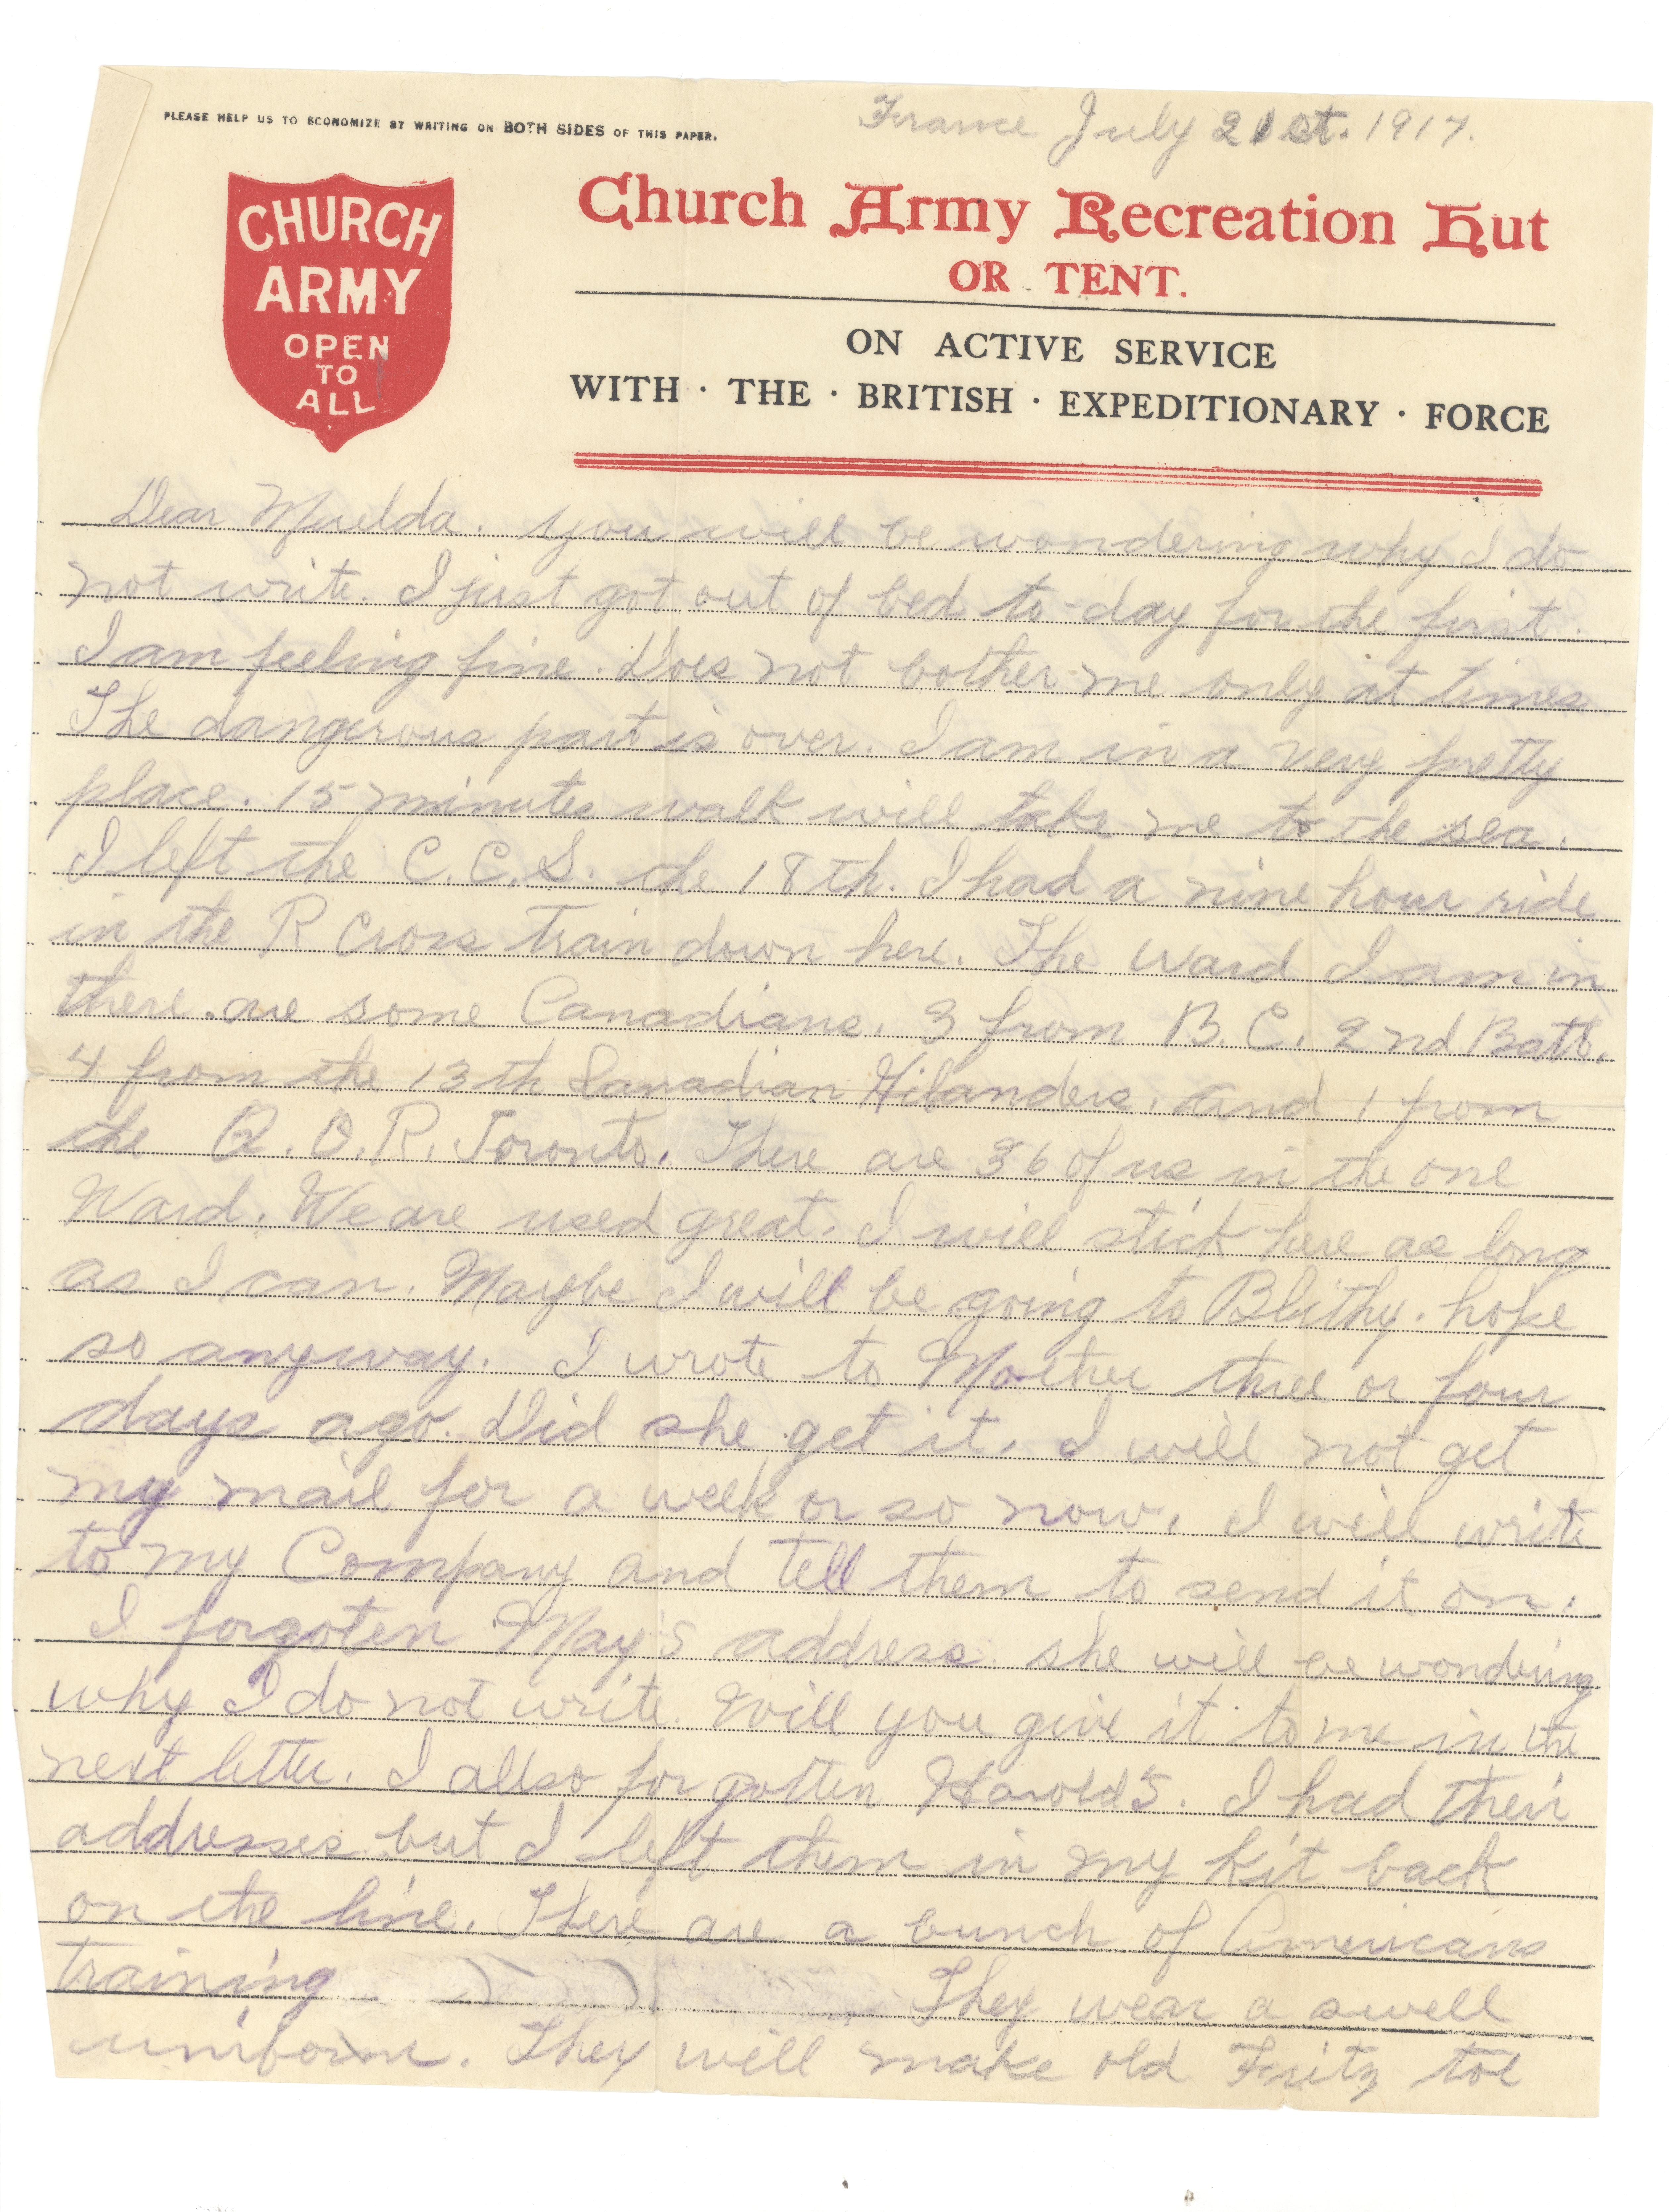 PLEASE HELP US TO ECONOMIZE BY WRITING ON BOTH SIDES OF THIS PAPER.
France July 21st. 1917.
CHURCH
ARMY
OPEN
TO
ALL
Church Army Recreation Hut
OR TENT.
ON ACTIVE SERVICE
WITH · THE · BRITISH · EXPEDITIONARY · FORCE
Dear . You will be wondering why I do
not write. I just got out of bed to-day for the first.
I am feeling fine. Does not bother me only at times
The dangerous part is over. I am in a very pretty
place. 15 minutes walk will take me to the sea.
I left the C.C.S. the 18th. I had a nine hour ride
in the R Cross train down here. The Ward I am in
there are some Canadians. 3 from B.C. 2nd Batt.
4 from the 13th Canadian Hilanders. and 1 from
the Q.O.R. Toronto. There are 36 of us in the one
Ward. We are used great. I will stick here as long
as I can. Maybe I will be going to Blithy. hope
so anyway. I wrote to Mother three or four
days ago. Did she get it. I will not get
my mail for a week or so now. I will write
to my Company and tell them to send it on.
I forgoten May's address. she will be wondering
why I do not write. Will you give it to me in the
next letter. I allso forgotten Harold's. I had their
addresses but I left them in my kit back
on the line. There are a bunch of Americans
training They wear a swell
uniborm. They will make old Fritz toe